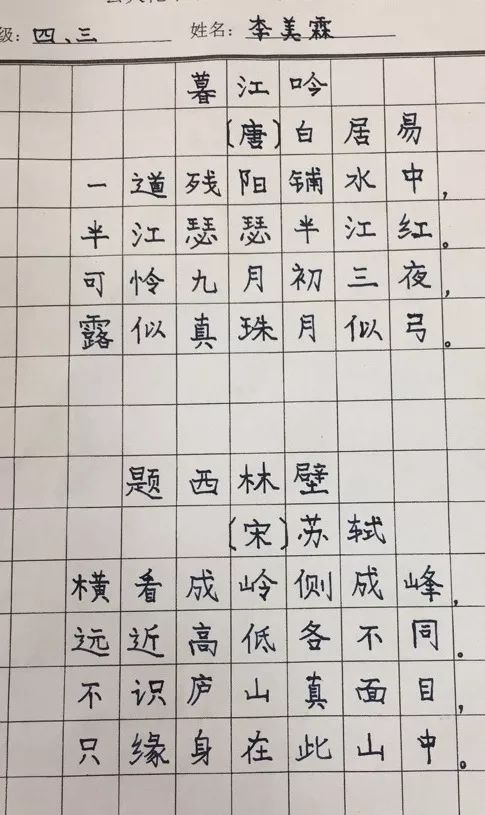 级：四、三 姓名：李美霖
暮江吟
（唐）白居易
一道残阳铺水中，
半江瑟瑟半江红。
可怜九月初三夜，
露似真珠月似弓。
题西林壁
（宋）苏轼
横看成岭侧成峰，
远近高低各不同。
不识庐山真面目，
只缘身在此山中。